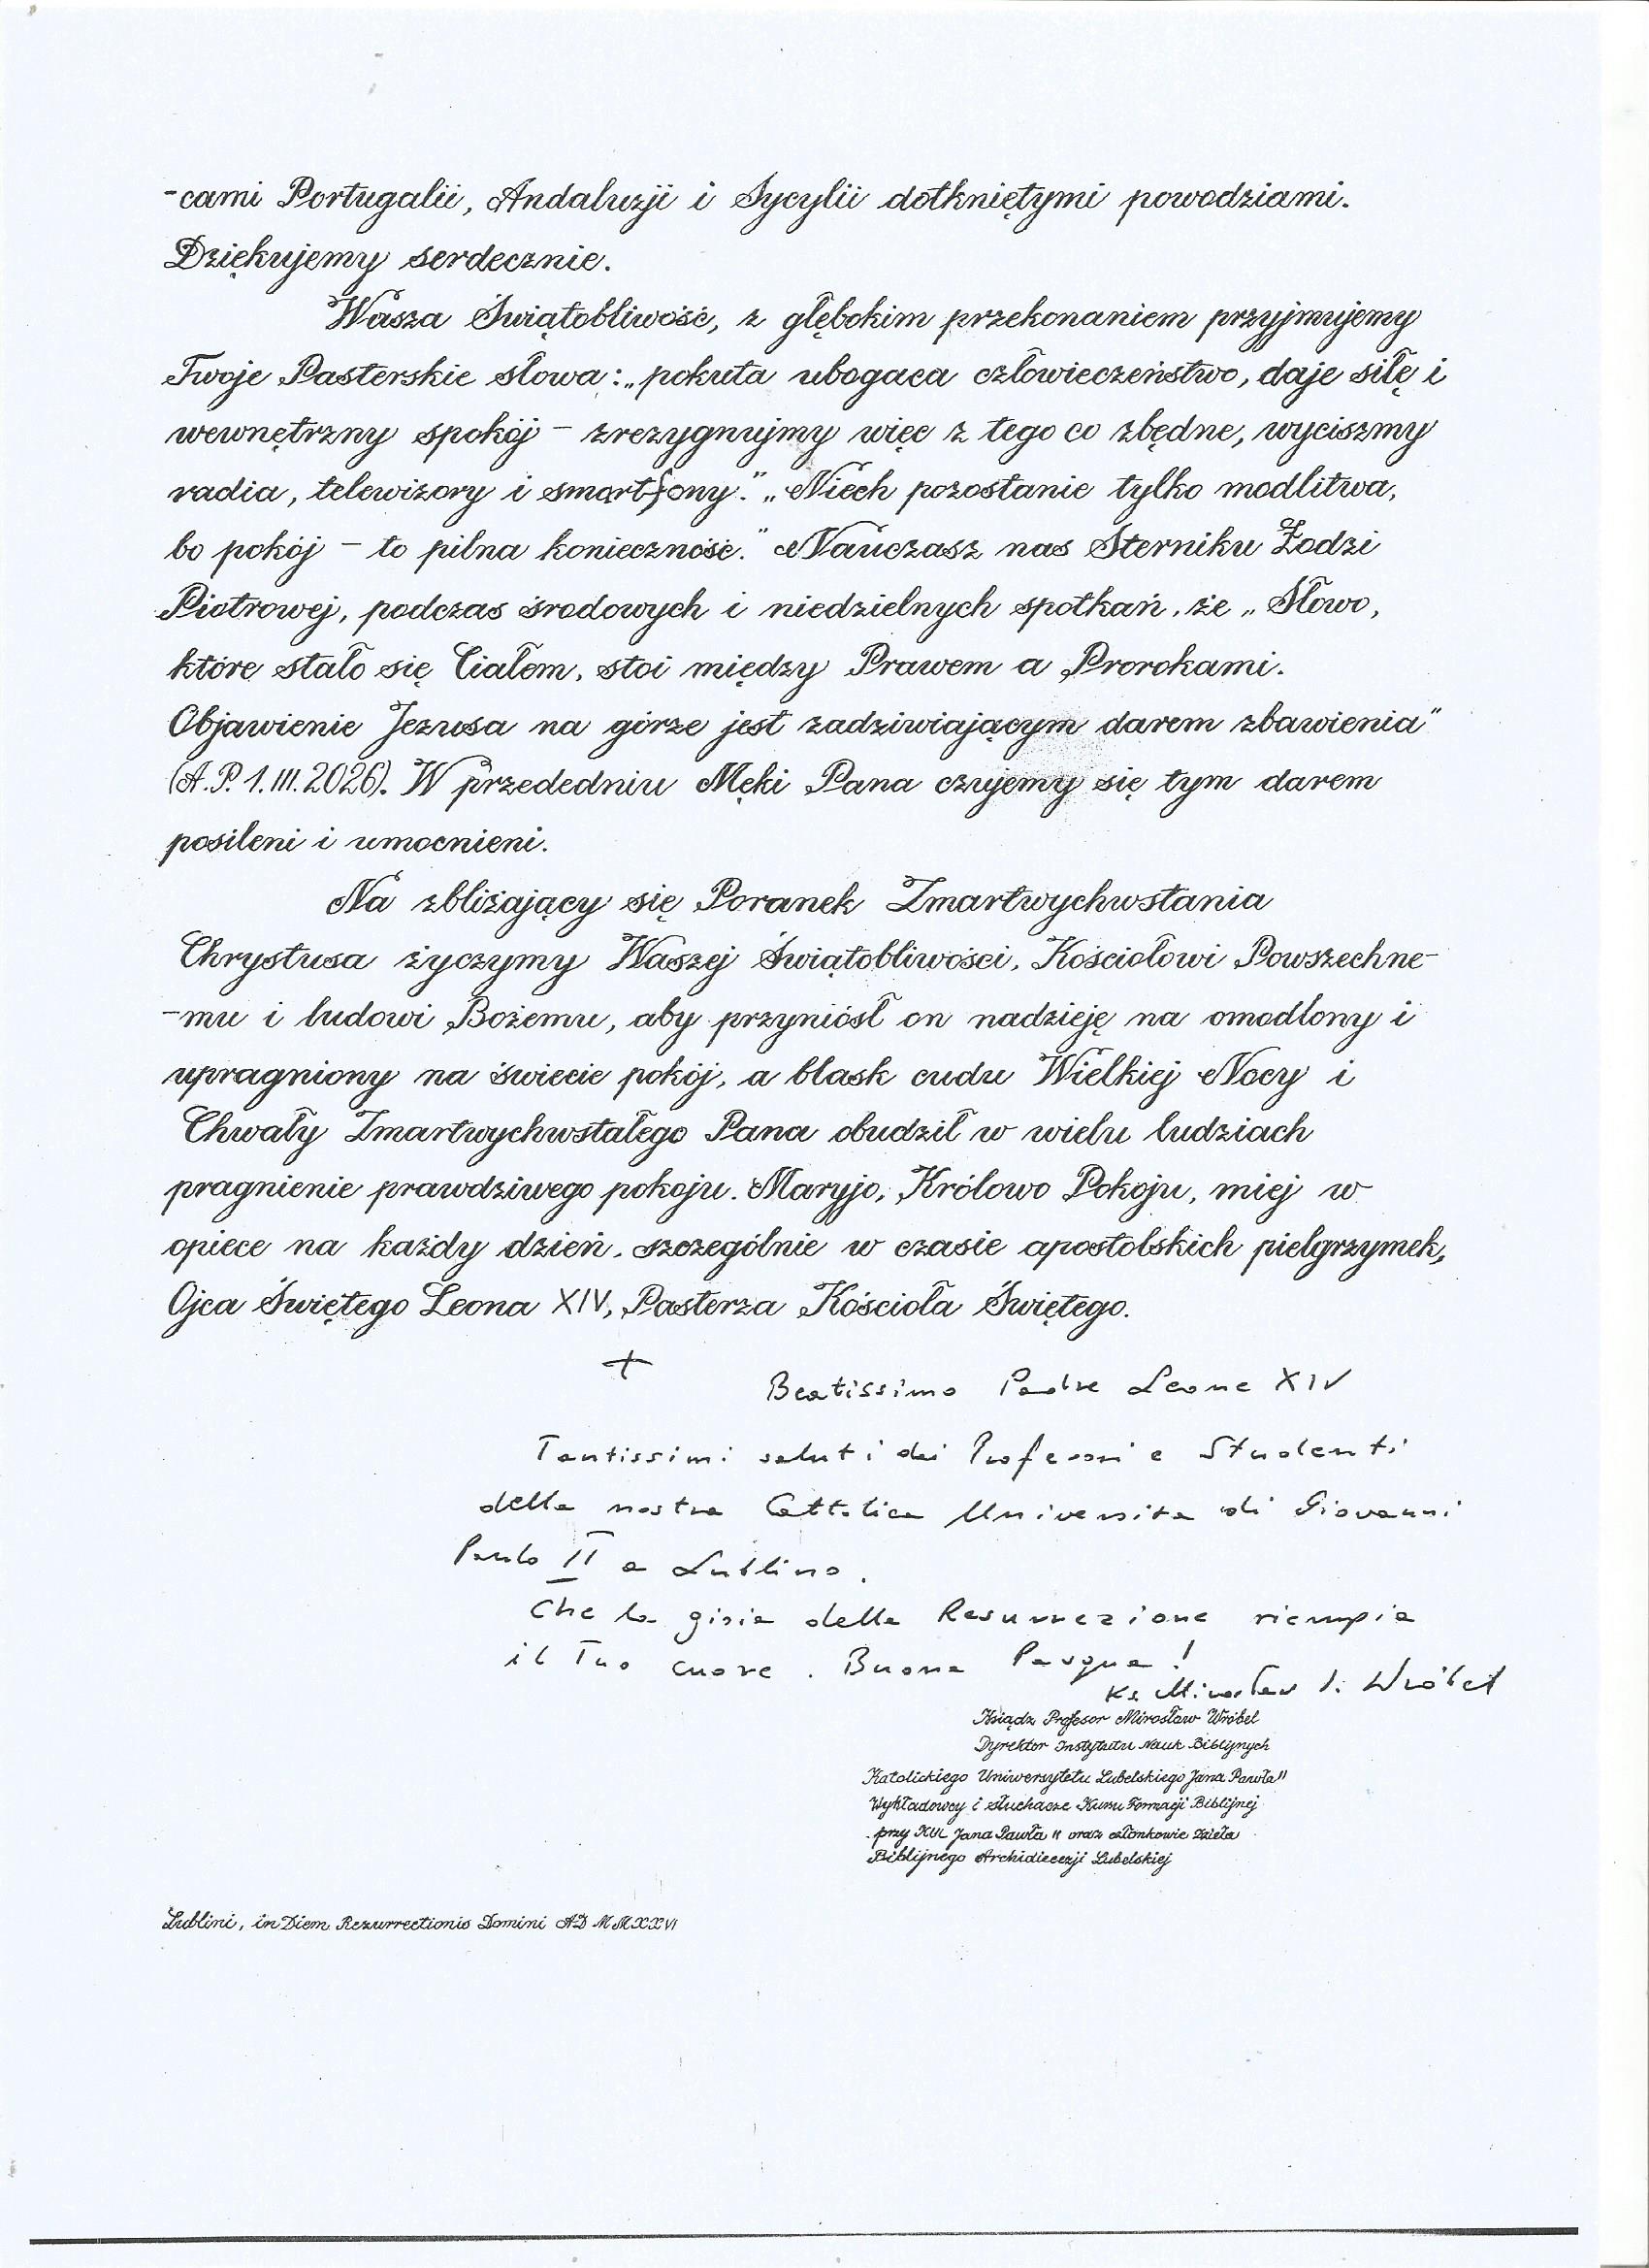 -cami Portugalii, Andaluzji i Sycylii dotkniętymi powodziami.
Dziękujemy serdecznie.
Wasza Świątobliwość, z głębokim przekonaniem przyjmujemy
Twoje Pasterskie słowa: „pokuta ubogaca człowieczeństwo, daje siłę i
wewnętrzny spokój – zrezygnujmy więc z tego co zbędne, wyciszmy
radia, telewizory i smartfony." „Niech pozostanie tylko modlitwa,
bo pokój – to pilna konieczność." Nauczasz nas Sterniku Łodzi
Piotrowej, podczas środowych i niedzielnych spotkań, że „Słowo,
które stało się Ciałem, stoi między Prawem a Prorokami.
Objawienie Jezusa na górze jest zadziwiającym darem zbawienia"
(A.P. 1.III.2026). W przededniu Męki Pana czujemy się tym darem
posileni i umocnieni.
Na zbliżający się Poranek Zmartwychwstania
Chrystusa życzymy Waszej Świątobliwości, Kościołowi Powszechne-
-mu i ludowi Bożemu, aby przyniósł on nadzieję na omodlony i
upragniony na świecie pokój, a blask cudu Wielkiej Nocy i
Chwały Zmartwychwstałego Pana obudził w wielu ludziach
pragnienie prawdziwego pokoju. Maryjo, Królowo Pokoju, miej w
opiece na każdy dzień, szczególnie w czasie apostolskich pielgrzymek,
Ojca Świętego Leona XIV, Pasterza Kościoła Świętego.
Beatissimo Padre Leone XIV
Tantissimi saluti dai Professori e Studenti
della nostra Cattolica Universita di Giovanni
Paolo II a Lublino.
Che la gioia della Resurrezione riempia
il Tuo cuore. Buona Pasqua!
Ks. Mirosław S. Wróbel
Ksiądz Profesor Mirosław Wróbel
Dyrektor Instytutu Nauk Biblijnych
Katolickiego Uniwersytetu Lubelskiego Jana Pawła II
Wykładowcy i słuchacze Kursu Formacji Biblijnej
przy KUL Jana Pawła II oraz członkowie Dzieła
Biblijnego Archidiecezji Lubelskiej
Lublini, in Diem Rezurrectionis Domini AD MMXXVI